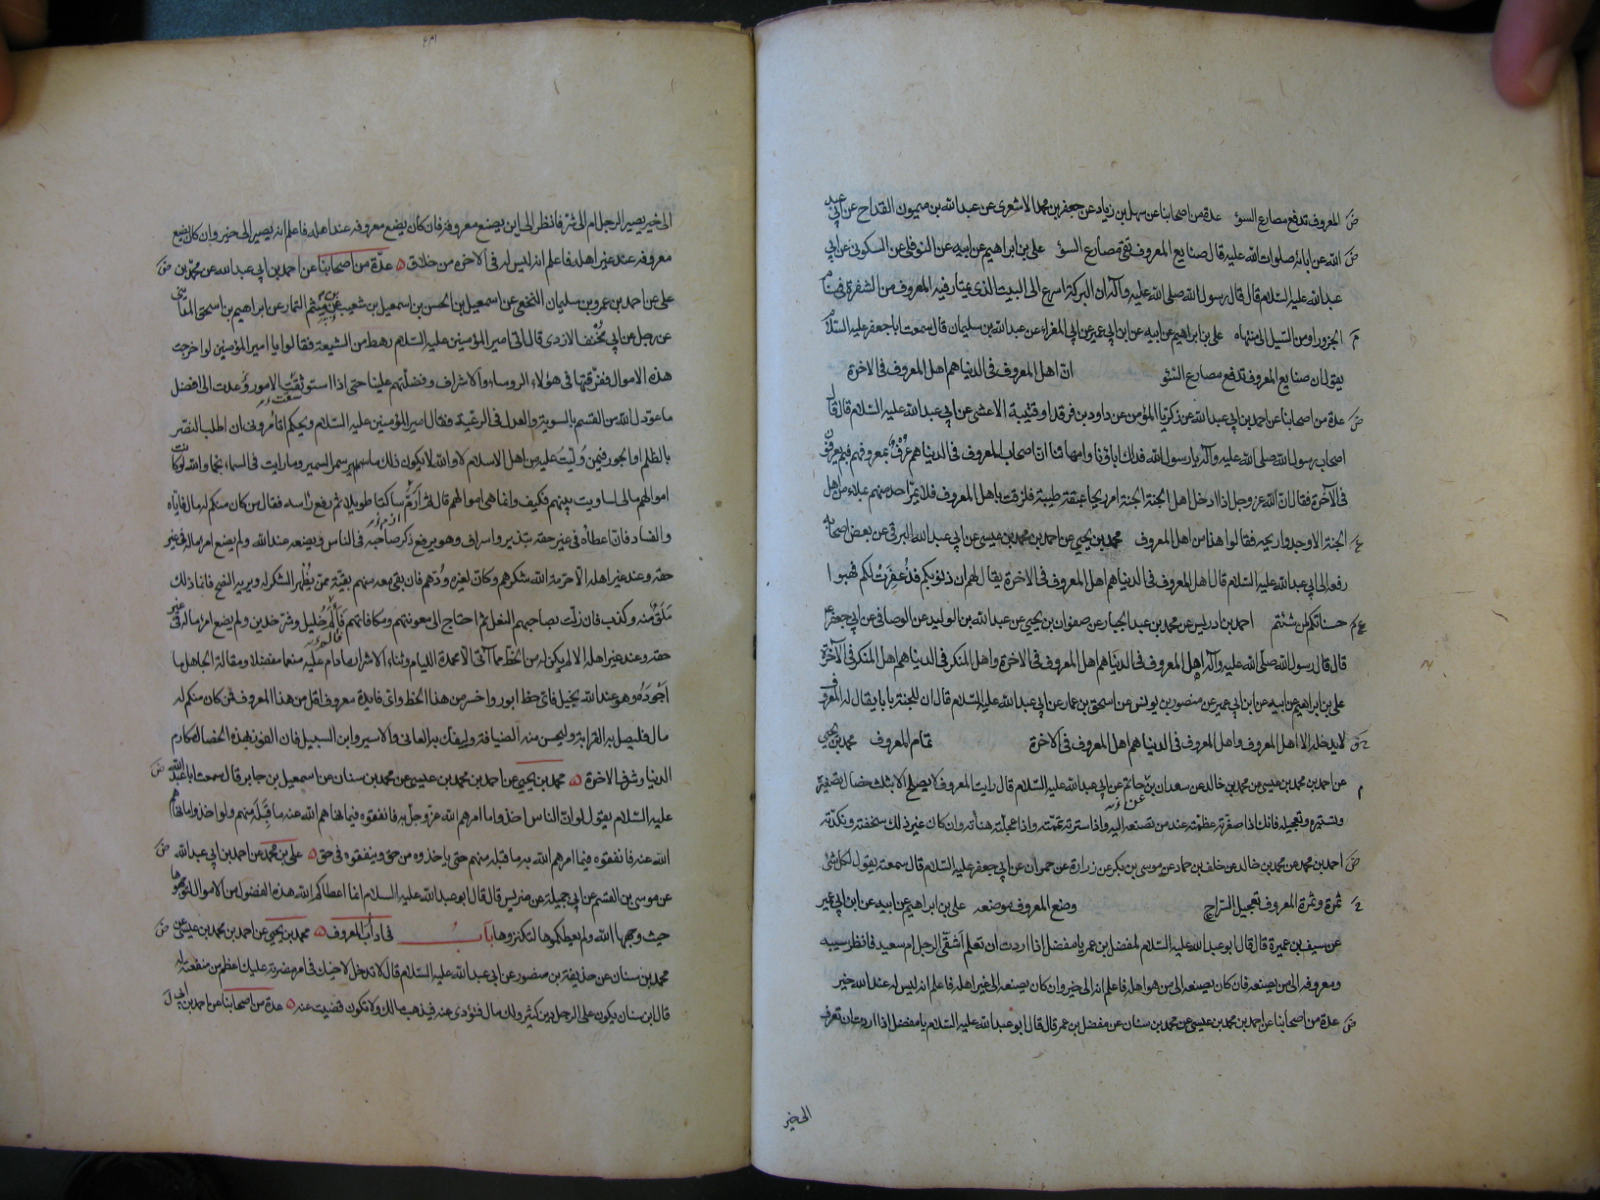 المعروف تدفع مصارع السوء عدة من اصحابنا عن سهل بن زياد عن جعفر بن محمد الاشعري عن عبد الله بن ميمون القداح عن ابي عبد
الله عن ابائه صلوات الله عليه قال صنايع المعروف تقي مصارع السوء علي بن ابراهيم عن ابيه عن النوفلي عن السكوني عن ابي
عبد الله عليه السلام قال قال رسول الله صلى الله عليه وآله ان البركة اسرع الى البيت الذي يمتار فيه المعروف من الشفرة في سنام
الجزور او من السيل الى منتهاه علي بن ابراهيم عن ابيه عن ابن ابي عمير عن ابي المغراء عن عبد الله بن سليمان قال سمعت ابا جعفر عليه السلام
يقول ان صنايع المعروف تدفع مصارع السوء ان اهل المعروف في الدنيا هم اهل المعروف في الاخرة
عدة من اصحابنا عن احمد بن ابي عبد الله عن زكريا المؤمن عن داود بن فرقد او قتيبة الاعشى عن ابي عبد الله عليه السلام قال قال
اصحاب رسول الله صلى الله عليه وآله يا رسول الله فداك اباؤنا وامهاتنا ان اصحاب المعروف في الدنيا هم عرفوا بمعروفهم فبم يعرفون
في الآخرة فقال ان الله عز وجل اذا ادخل اهل الجنة الجنة امر ريحا عبقة طيبة فلزقت باهل المعروف فلا يمر احد منهم بملاء من اهل
الجنة الا وجدوا ريحه فقالوا هذا من اهل المعروف محمد بن يحيى عن احمد بن محمد بن عيسى عن ابي عبد الله البرقي عن بعض اصحابه
رفعه الى ابي عبد الله عليه السلام قال اهل المعروف في الدنيا هم اهل المعروف في الاخرة يقال لهم ان ذنوبكم قد غفرت لكم فهبوا
حسناتكم لمن شئتم احمد بن ادريس عن محمد بن عبد الجبار عن صفوان بن يحيى عن عبد الله بن الوليد عن الوصافي عن ابي جعفر ع
قال قال رسول الله صلى الله عليه وآله اهل المعروف في الدنيا هم اهل المعروف في الاخرة واهل المنكر في الدنيا هم اهل المنكر في الآخرة
علي بن ابراهيم عن ابيه عن ابن ابي عمير عن منصور بن يونس عن اسحق بن عمار عن ابي عبد الله عليه السلام قال ان للجنة بابا يقال له المعروف
لا يدخله الا اهل المعروف واهل المعروف في الدنيا هم اهل المعروف في الاخرة تمام المعروف محمد بن يحيى
عن احمد بن محمد بن عيسى عن محمد بن خالد عن سعدان بن حاتم عن ابي عبد الله عليه السلام قال رايت المعروف لا يصلح الا بثلث خصال تصغيره
وتستيره وتعجيله فانك اذا صغرته عظمته عند من تصنعه اليه واذا سترته تممته واذا عجلته هنأته وان كان غير ذلك سخفته ونكدته
احمد بن محمد عن محمد بن خالد عن خلف بن حماد عن موسى بن بكر عن زرارة عن حمران عن ابي جعفر عليه السلام قال سمعته يقول لكل شئ
ثمرة وثمرة المعروف تعجيل السراج وضع المعروف موضعه علي بن ابراهيم عن ابيه عن ابن ابي عمير
عن سيف بن عميرة قال قال ابو عبد الله عليه السلام لمفضل بن عمر يا مفضل اذا اردت ان تعلم اشقي الرجل ام سعيد فانظر سيبه
ومعروفه الى من يصنعه فان كان يصنعه الى من هو اهله فاعلم انه الى خير وان كان يصنعه الى غير اهله فاعلم انه ليس له عند الله خير
عدة من اصحابنا عن احمد بن محمد بن عيسى عن محمد بن سنان عن مفضل بن عمر قال قال ابو عبد الله عليه السلام يا مفضل اذا اردت ان تعرف
الى خير
الى خير يصير الرجل ام الى شر فانظر الى اين يصنع معروفه فان كان يضع معروفه عند اهله فاعلم انه يصير الى خير وان كان يضع
معروفه عند غير اهله فاعلم انه ليس له في الاخره من خلاق عدة من اصحابنا عن احمد بن ابي عبد الله عن محمد بن
علي عن احمد بن عمرو بن سليمان النخعي عن اسمعيل بن الحسن بن اسمعيل بن شعيب بن ميثم التمار عن ابراهيم بن اسحق المدائني
عن رجل عن ابي مخنف الازدي قال اتى امير المؤمنين عليه السلام رهط من الشيعة فقالوا يا امير المؤمنين لو اخرجت
هذه الاموال ففرقتها في هؤلاء الروساء والاشراف وفضلتهم علينا حتى اذا استوثقت الامور وعدت الى افضل
ما عودك الله من القسم بالسوية والعدل في الرعية فقال امير المؤمنين عليه السلام ويحكم اتامروني ان اطلب النصر
بالظلم والجور فيمن وليت عليه من اهل الاسلام لا والله لا يكون ذلك ما سمر السمير وما رايت في السماء نجما والله لو كانت
اموالهم مالى لساويت بينهم فكيف وانما هي اموالهم قال ثم ازم ساكتا طويلا ثم رفع راسه فقال من كان منكم له مال فاياه
والفساد فان اعطاءه في غير حقه تبذير واسراف وهو يرفع ذكر صاحبه في الناس ويضعه عند الله ولم يضع امرء ماله في غير
حقه وعند غير اهله الا حرمه الله شكرهم وكان لغيره ودهم فان بقي معه منهم بقية ممن يظهر الشكر له ويريه النصح فانما ذلك
ملق منه وكذب فان زلت بصاحبهم النعل ثم احتاج الى معونتهم ومكافاتهم فالام خليل وشر خدين ولم يضع امرء ماله في غير
حقه وعند غير اهله الا لم يكن له من الحظ فيما اتى الا محمدة اللئام وثناء الاشرار ما دام عليه منعما مفضلا ومقالة الجاهل ما
اجوده وهو عند الله بخيل فاي حظ ابور واخسر من هذا الحظ واي فايدة معروف اقل من هذا المعروف فمن كان منكم له
مال فليصل به القرابة وليحسن منه الضيافة وليفك به العاني والاسير وابن السبيل فان الفوز بهذه الخصال مكارم
الدنيا وشرف الاخرة محمد بن يحيى عن احمد بن محمد بن عيسى عن محمد بن سنان عن اسمعيل بن جابر قال سمعت ابا عبد الله
عليه السلام يقول لو ان الناس اخذوا ما امرهم الله عز وجل به فانفقوه فيما نهاهم الله عنه ما قبله منهم ولو اخذوا ما نهاهم
الله عنه فانفقوه فيما امرهم الله به ما قبله منهم حتى ياخذوه من حق وينفقوه في حق علي بن محمد عن احمد بن ابي عبد الله
عن موسى بن القسم عن ابي جميلة عن ضريس قال قال ابو عبد الله عليه السلام انما اعطاكم الله هذه الفضول من الاموال لتوجهوها
حيث وجهها الله ولم يعطكموها لتكنزوها باب في اداب المعروف محمد بن يحيى عن احمد بن محمد بن عيسى عن
محمد بن سنان عن حذيفة بن منصور عن ابي عبد الله عليه السلام قال لا تدخل لاخيك في امر مضرته عليك اعظم من منفعته له
قال ابن سنان يكون على الرجل دين كثير ولك مال فتؤدي عنه فيذهب مالك ولا تكون قضيت عنه عدة من اصحابنا عن احمد بن ابي